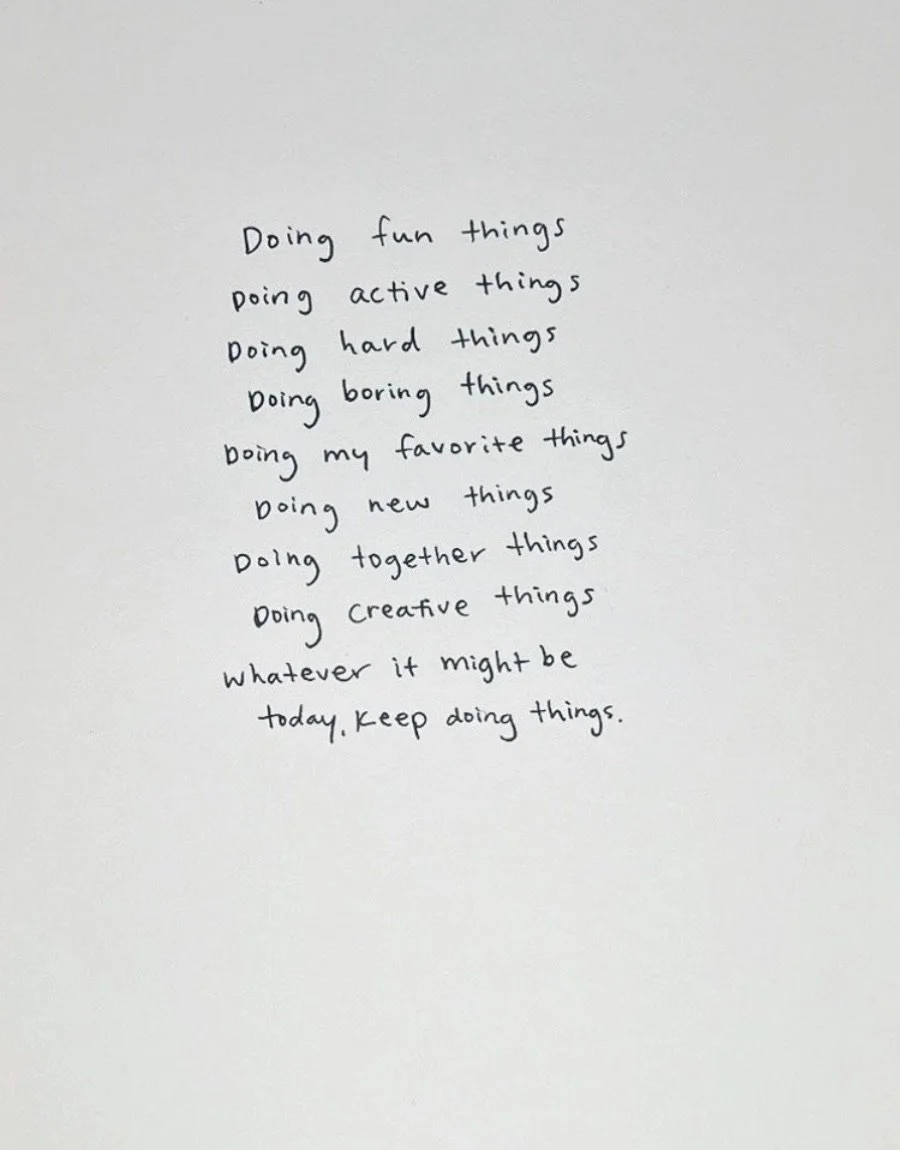 Doing fun things
Doing active things
Doing hard things
Doing boring things
Doing my favorite things
Doing new things
Doing together things
Doing creative things
whatever it might be
today. Keep doing things.